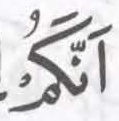 اَنَّكُمْ